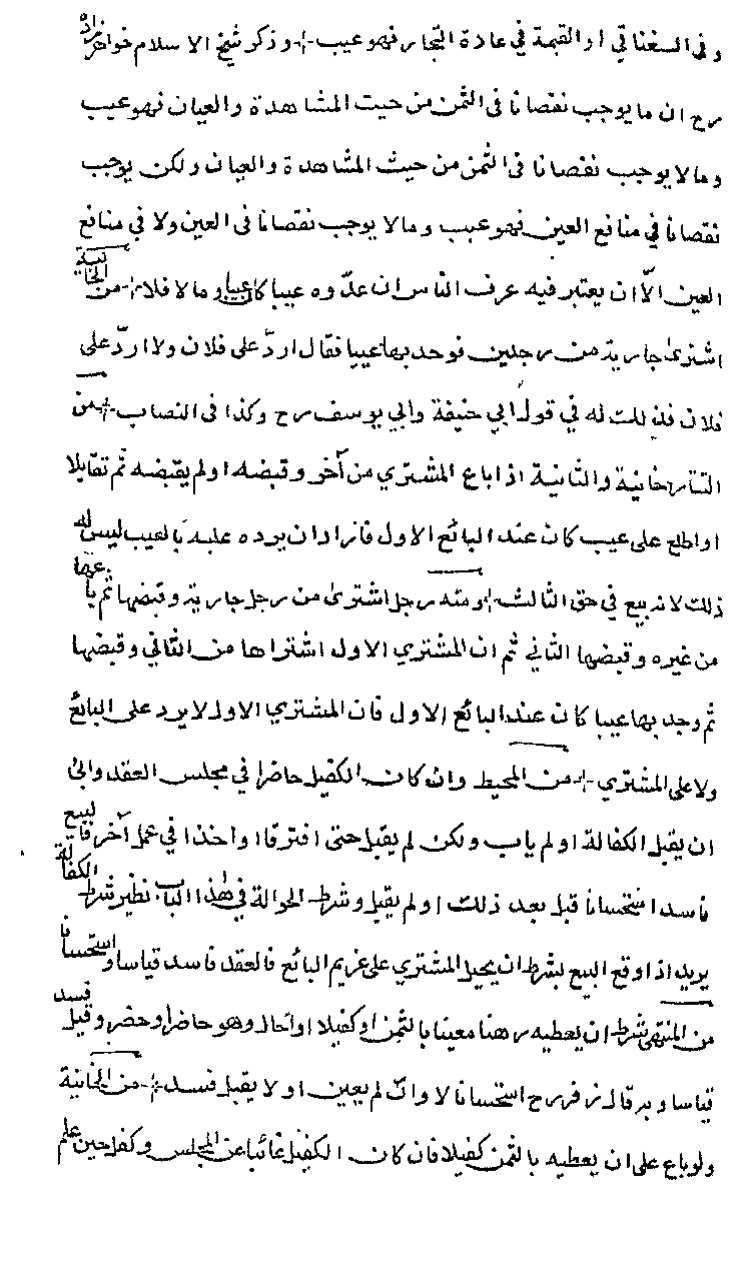 وفى السغناقي او القيمة في عادة التجار فهو عيب وذكر شيخ الاسلام خواهر زاده
رح ان ما يوجب نقصانا فى الثمن من حيث المشاهدة والعيان فهو عيب
وما لا يوجب نقصانا فى الثمن من حيث المشاهدة والعيان ولكن يوجب
نقصانا في منافع العين فهو عيب وما لا يوجب نقصانا فى العين ولا في منافع
العين الّا ان يعتبر فيه عرف الناس ان عدّوه عيبا كان عيبا وما لا فلا من الخانية
اشترى جارية من رجلين فوجد بها عيبا فقال اردّ على فلان ولا اردّ على
فلان فذلك له في قول ابي حنيفة وابي يوسف رح وكذا فى النصاب من
التتارخانية والثانية اذا باع المشتري من آخر وقبضه او لم يقبضه ثم تقايلا
او اطلع على عيب كان عند البائع الاول فاراد ان يرده عليه بالعيب ليس له
ذلك لانه بيع في حق الثالث ومنه رجل اشترى من رجل جارية وقبضها ثم باعها
من غيره وقبضها الثاني ثم ان المشتري الاول اشتراها من الثاني وقبضها
ثم وجد بها عيبا كان عند البائع الاول فان المشتري الاول لا يرد على البائع
ولا على المشتري من المحيط وان كان الكفيل حاضرا في مجلس العقد وابى
ان يقبل الكفالة او لم ياب ولكن لم يقبل حتى افترقا او اخذا في عمل آخر فالبيع
فاسد استحسانا قبل بعد ذلك او لم يقبل وشرط الحوالة في هذا الباب نظير شرط الكفالة
يريد اذا وقع البيع بشرط ان يحيل المشتري على غريم البائع فالعقد فاسد قياسا واستحسانا
من المنتهى شرط ان يعطيه رهنا معينا بالثمن او كفيلا او احال وهو حاضر او حضر وقبل فسد
قياسا وبه قال زفر رح استحسانا لا وان لم يعين او لا يقبل فسد من الخانية
ولو باع على ان يعطيه بالثمن كفيلا فان كان الكفيل غائبا عن المجلس وكفل حين علم